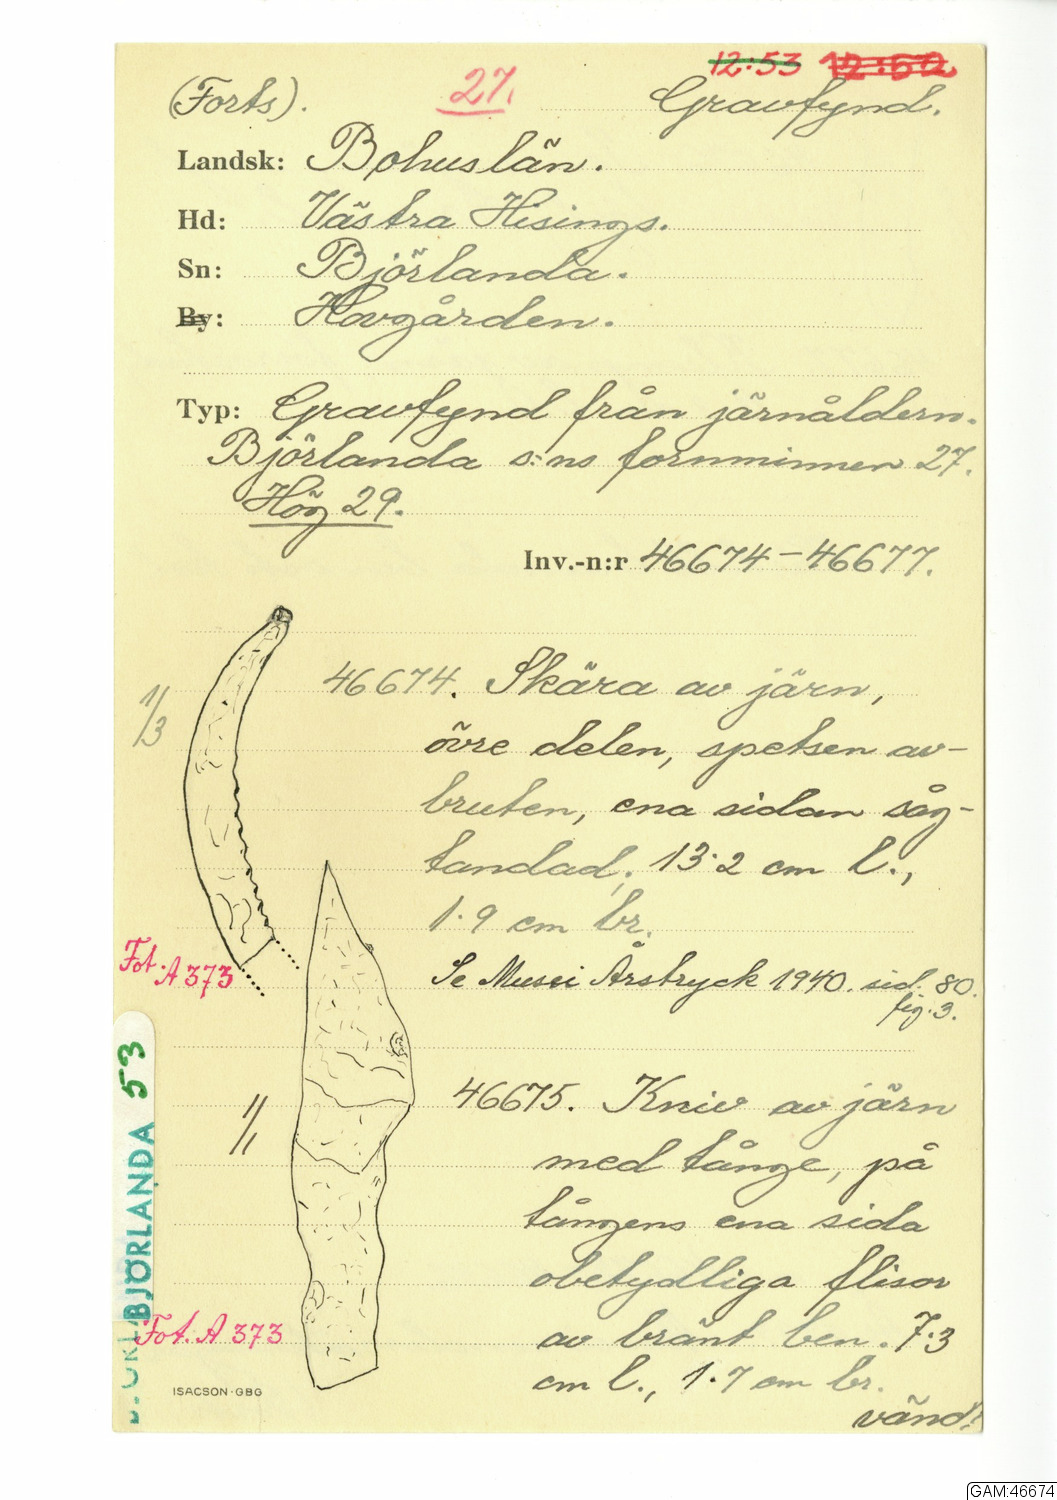 12:53 12:52
(Forts). 27. Gravfynd.
Landsk: Bohuslän.
Hd: Västra Hisings.
Sn: Björlanda.
By: Hovgården.
Typ: Gravfynd från järnåldern.
Björlanda s:ns fornminnen 27.
Hög 29.
Inv.-n:r 46674–46677.
1/3
46674. Skära av järn,
övre delen, spetsen av-
bruten, ena sidan såg-
tandad; 13·2 cm l.,
1·9 cm br.
Fot. A 373
Se Musei Årstryck 1940. sid. 80.
fig. 3.
BJÖRLANDA 53
1/1
46675. Kniv av järn
med tånge, på
tångens ena sida
obetydliga flisor
av bränt ben. 7·3
cm l., 1·7 cm br.
Fot. A 373
ISACSON·GBG
vänd!
GAM:46674